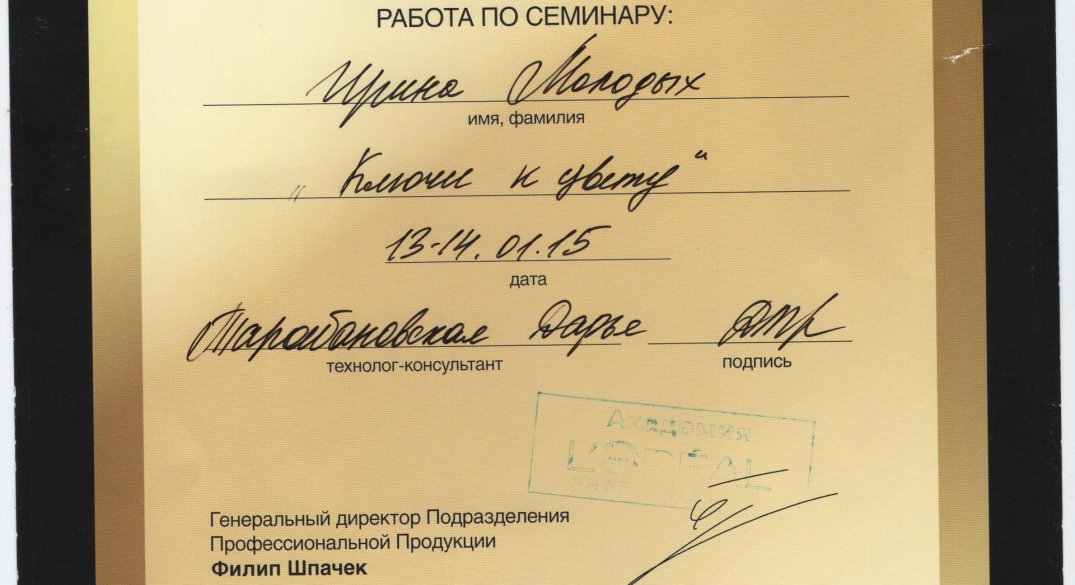 РАБОТА ПО СЕМИНАРУ:
Ирина Молодых
имя, фамилия
„Ключи к цвету“
13-14.01.15
дата
Дарья
технолог-консультант
подпись
Академия
L'ORÉAL
Генеральный директор Подразделения
Профессиональной Продукции
Филип Шпачек